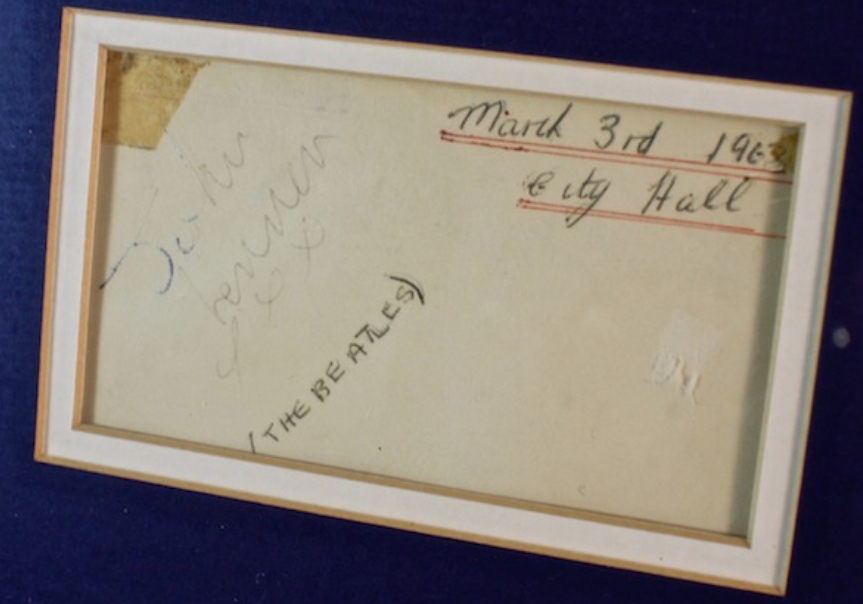 March 3rd 1963
City Hall
John
Lennon
xxx
(THE BEATLES)